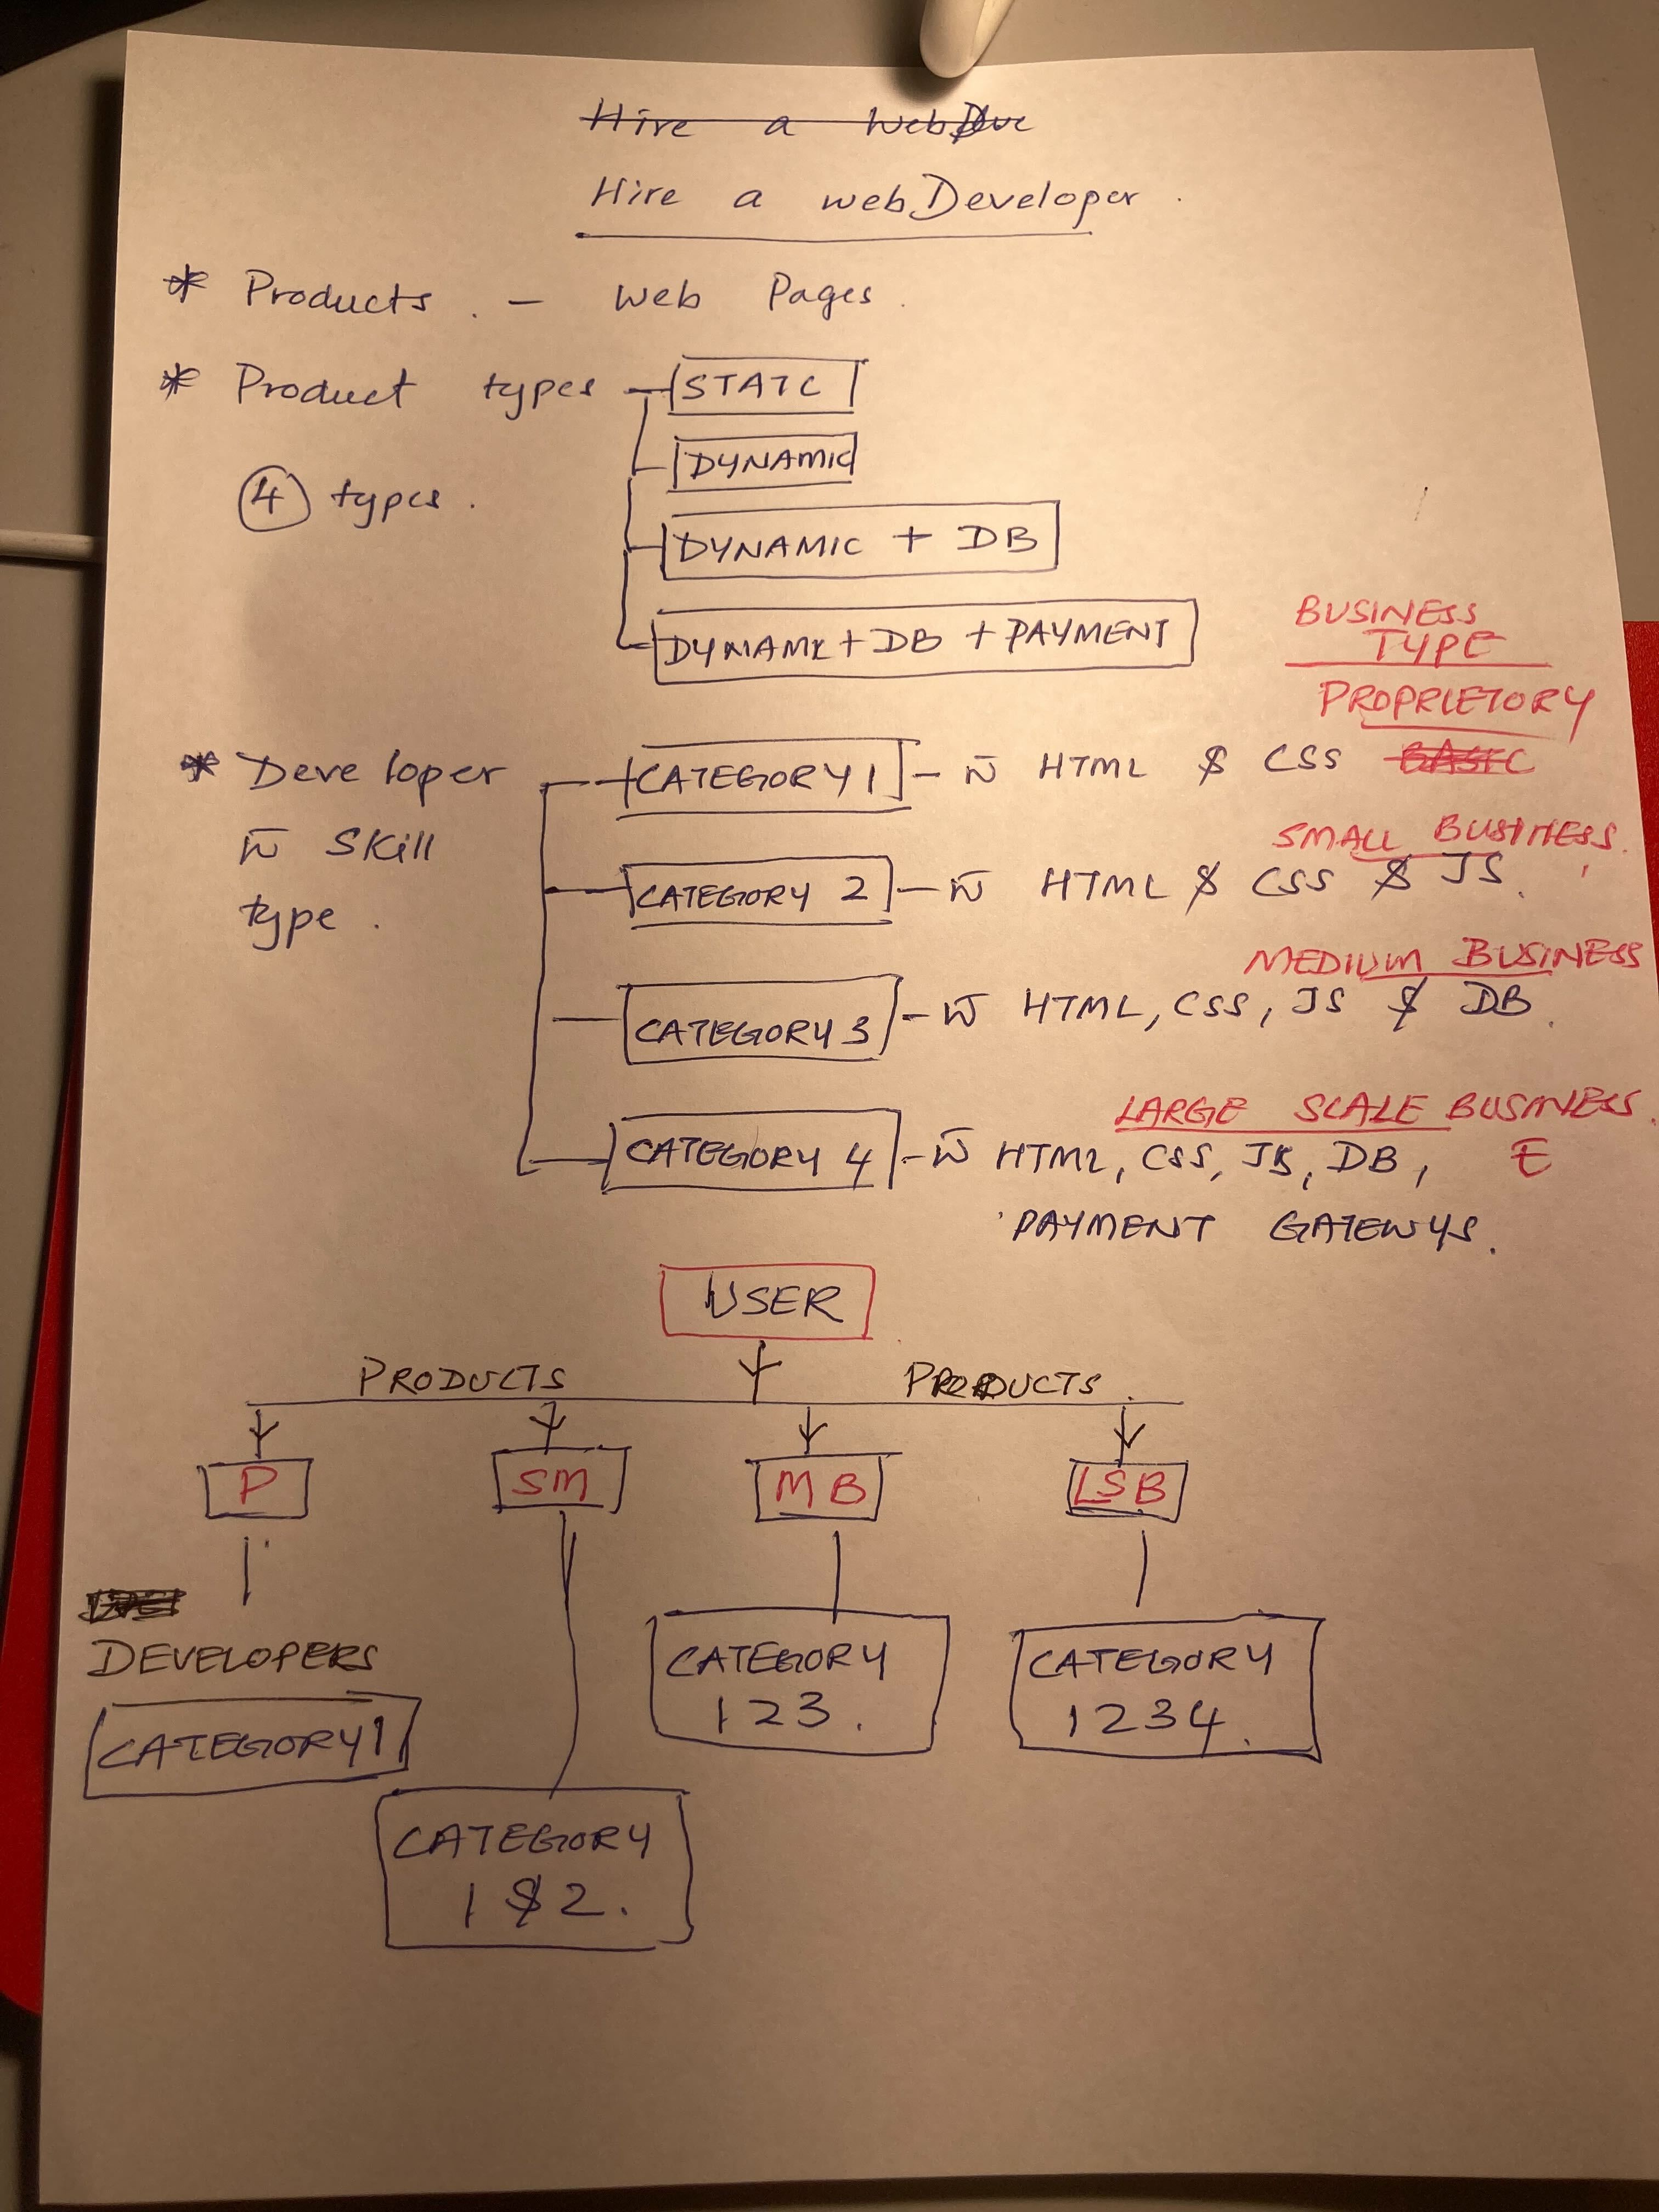 Hire a WebDve
Hire a webDeveloper.
* Products. - Web Pages.
* Product types
STATC
DYNAMIC
4 types.
DYNAMIC + DB
DYNAMIC + DB + PAYMENT
BUSINESS
TYPE
PROPRIETORY
* Developer
CATEGORY 1 - w HTML & CSS BASIC
w Skill
type.
SMALL BUSINESS.
CATEGORY 2 - w HTML & CSS & JS.
MEDIUM BUSINESS
CATEGORY 3 - w HTML, CSS, JS & DB.
LARGE SCALE BUSINESS.
CATEGORY 4 - w HTML, CSS, JS, DB, E
PAYMENT GATEWYS.
USER
PRODUCTS PRODUCTS.
P SM MB LSB
DEVELOPERS
CATEGORY 1
CATEGORY
1 2 3.
CATEGORY
1 2 3 4.
CATEGORY
1 & 2.